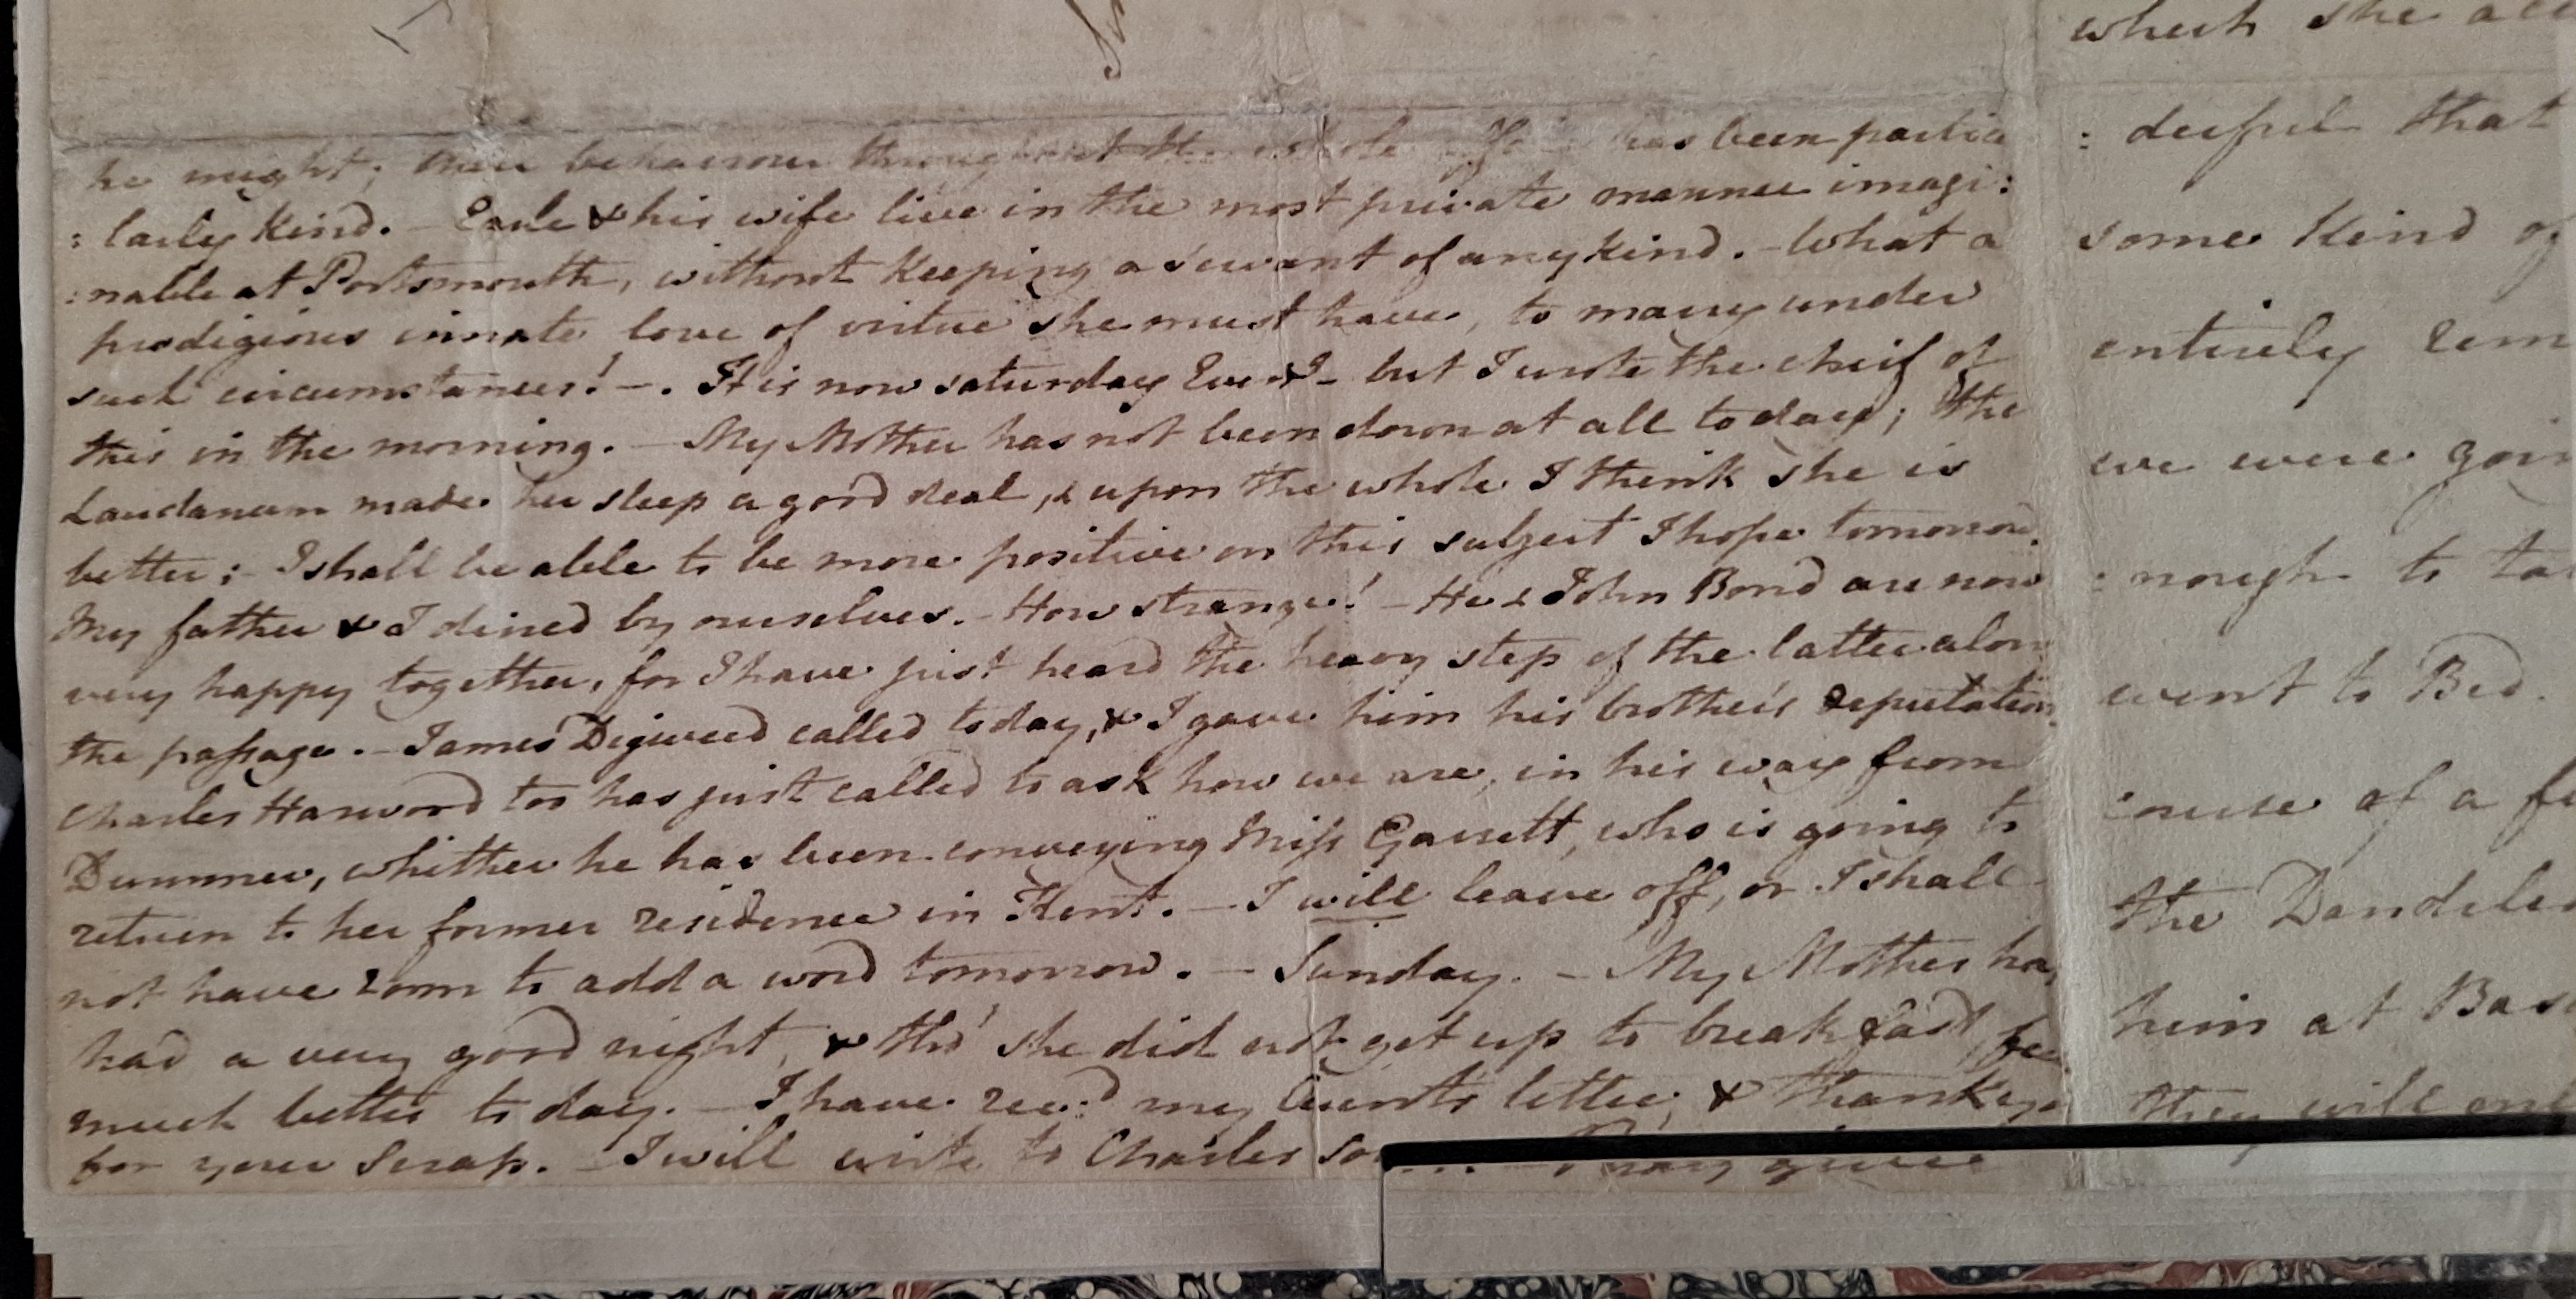 he might; their behaviour throughout the whole has been particu
:larly kind. - Earle & his wife live in the most private manner imagi:
:nable at Portsmouth, without keeping a servant of any kind. - What a
prodigious innate love of virtue she must have, to marry under
such circumstances! -. It is now saturday Eveng - but I wrote the cheif of
this in the morning. - My Mother has not been down at all to day; the
Laudanum made her sleep a good deal, & upon the whole I think she is
better; - I shall be able to be more positive on this subject I hope tomorrow.
My father & I dined by ourselves. - How strange! - He & John Bond are now
very happy together, for I have just heard the heavy step of the latter along
the passage. - James Digweed called today, & I gave him his brother's deputation.
Charles Harwood too has just called to ask how we are, in his way from
Dummer, whither he has been conveying Miss Garrett, who is going to
return to her former residence in Kent. - I will leave off, or I shall
not have room to add a word tomorrow. - Sunday. - My Mother has
had a very good night, & tho' she did not get up to breakfast, fee
much better to day. - I have recd my Aunt's letter, & thank you
for your Scrap. - I will write to Charles soon. - Pray give
which she
:derful that
some kind of
entirely rem
we were goin
:nough to ta
went to Bed.
:ourse of a f
the Dandeli
him at Bas
they will